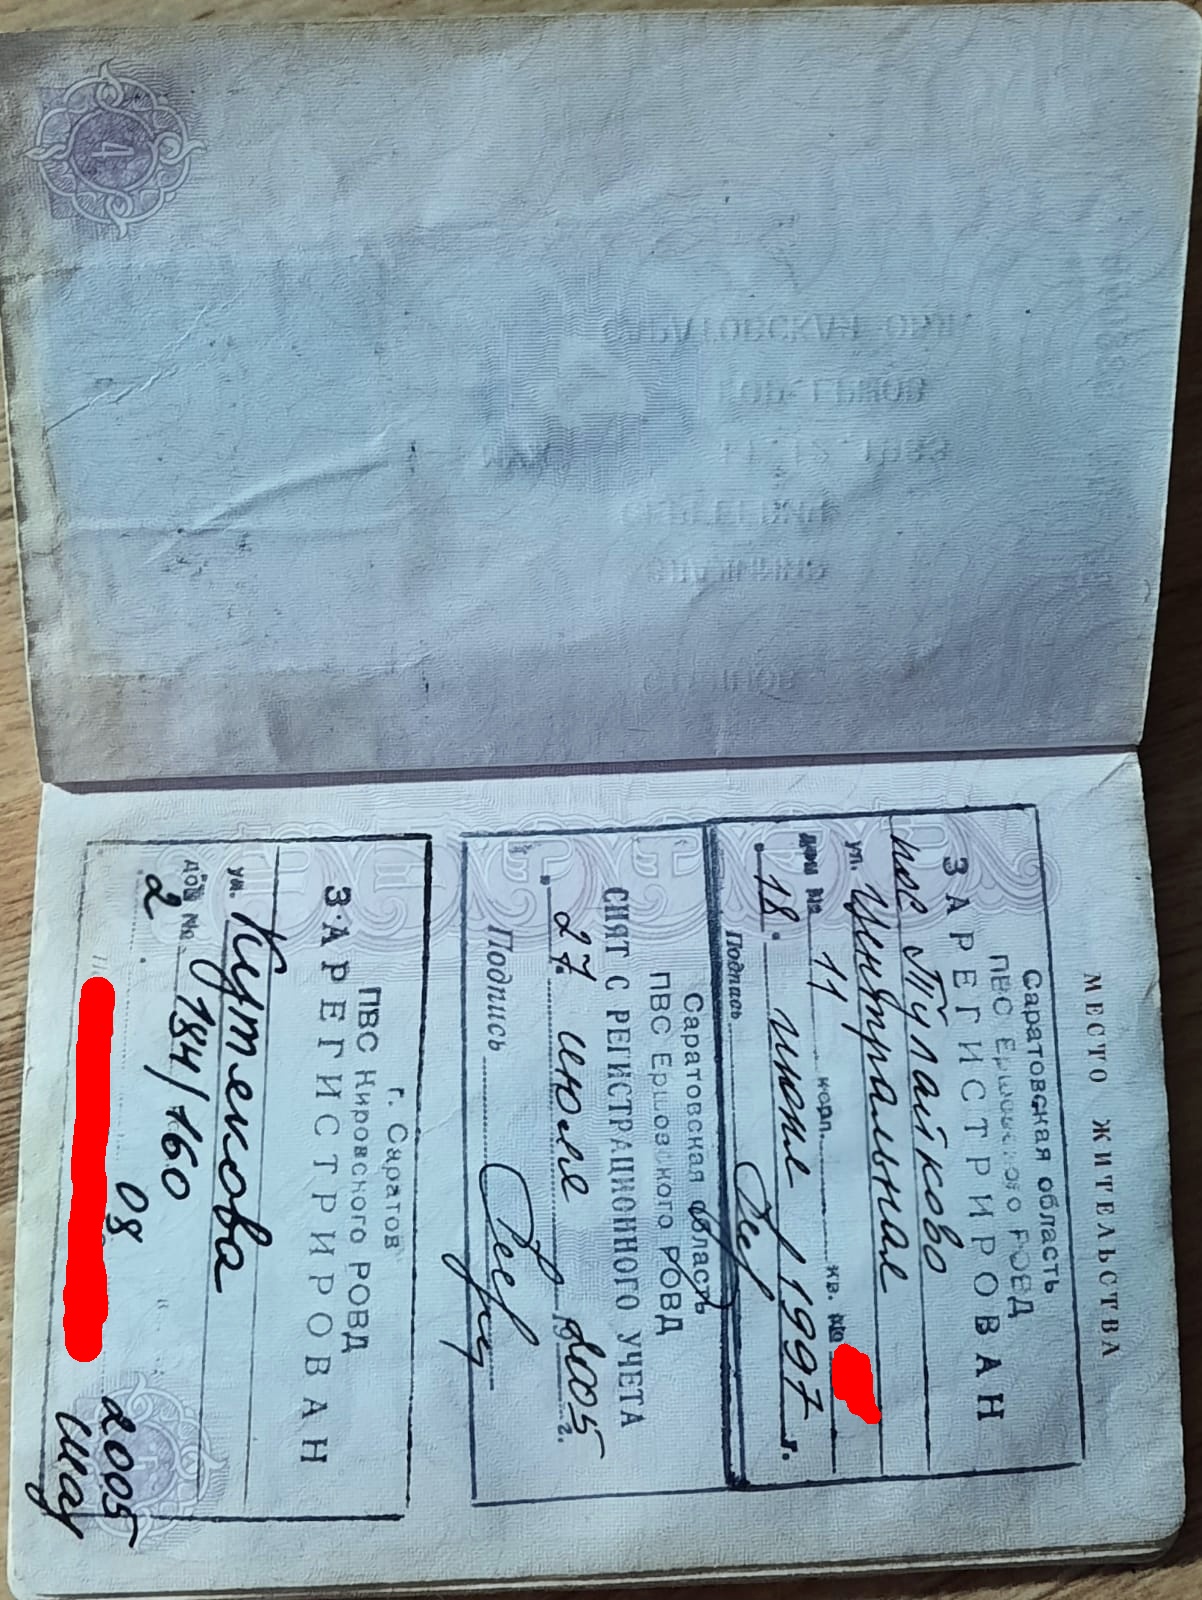 4
МЕСТО ЖИТЕЛЬСТВА
Саратовская область
ПВС Ершовского РОВД
ЗАРЕГИСТРИРОВАН
пос Тулайково
ул. Центральная
дом № 11 корп. кв. №
"18" июне 1997 г.
Подпись
Саратовская область
ПВС Ершовского РОВД
СНЯТ С РЕГИСТРАЦИОННОГО УЧЕТА
"27" июля 2005 г.
Подпись
г. Саратов
ПВС Кировского РОВД
ЗАРЕГИСТРИРОВАН
ул. Кутякова
дом № 184/160
2 08 2005
5